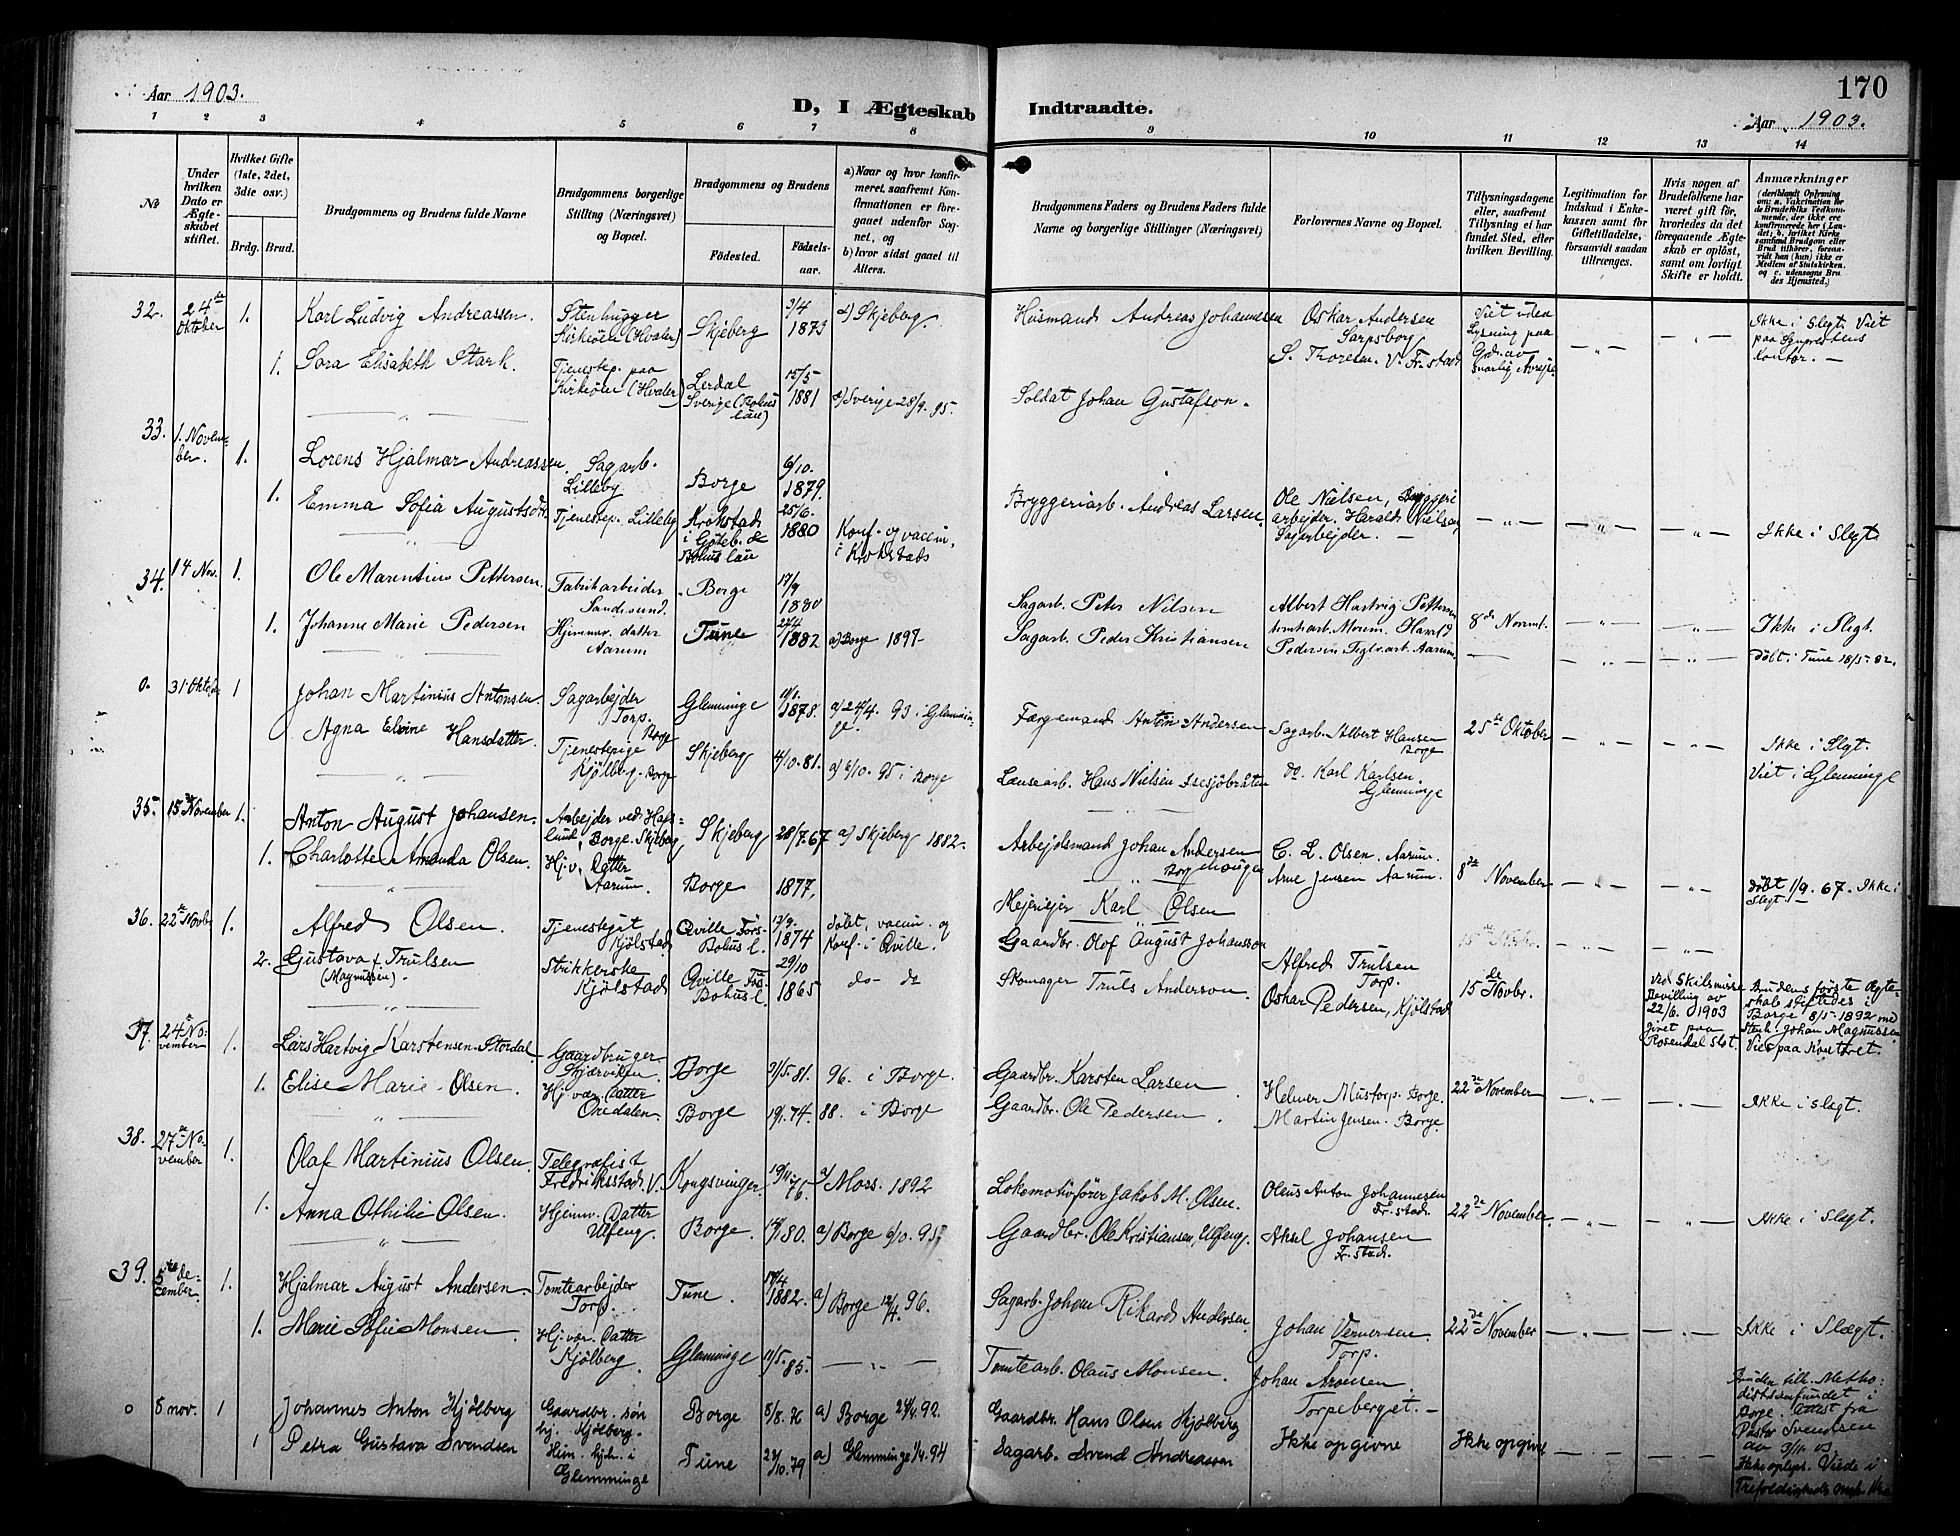 Aar 1903.
D, I Ægteskab Indtraadte.
170
Aar 1903.
1 2 3 4 5 6 7 8 9 10 11 12 13 14
No
Under hvilken Dato er Ægteskabet stiftet.
Hvilket Gifte (1ste, 2det, 3die osv.)
Brdg. Brud.
Brudgommens og Brudens fulde Navne
Brudgommens borgerlige Stilling (Næringsvei) og Bopæl.
Brudgommens og Brudens
Fødested.
Fødselsaar.
a) Naar og hvor konfirmeret, saafremt Konfirmationen er foregaaet udenfor Sognet, og
b) hvor sidst gaaet til Alters.
Brudgommens Faders og Brudens Faders fulde Navne og borgerlige Stillinger (Næringsvei)
Forlovernes Navne og Bopæl.
Tillysningsdagene eller, saafremt Tillysning ei har fundet Sted, efter hvilken Bevilling.
Legitimation for Indskud i Enkekassen samt for Giftetilladelse, forsaavidt saadan tiltrænges.
Hvis nogen af Brudefolkene har været gift før, hvorledes da det foregaaende Ægteskab er opløst, samt om lovligt Skifte er holdt.
Anmærkninger
(deriblandt Oplysning om: a. Vakcination for de Brudefolks Vedkommende, der ikke ere konfirmerede her i Landet; b. hvilket Kirkesamfund Brudgom eller Brud tilhører, forsaavidt han (hun) ikke er Medlem af Statskirken, og c. udensogns Brudes Hjemsted.)
32. 24de Oktober 1. Karl Ludvig Andreassen. Stenhugger Kirkøen (Hvaler) Skjeberg 3/4 1873 a) Skjeberg. Husmand Andreas Johannesen Oskar Andersen Sarpsborg Viet uden Lysning paa Ikke i Slegt. Viet paa Sogneprestens Kontor.
1. Sara Elisabeth Stark. Tjenestep. paa Kirkøen (Hvaler) Lerdal Sverige (Bohus län) 15/5 1881 a) Sverige 28/9. 95. Soldat Johan Gustafson. S. Thoresen. V. Fr.stad
33. 1. November. 1. Lorens Hjalmar Andreassen. Sagarb. Lilleby Borge 6/10. 1879. Bryggeriarb. Andreas Larsen. Ole Nielsen, Bryggeriarbejder. Harald Nielsen Sagarbejder. Ikke i Slegt
1. Emma Sofia Augustsdtr. Tjenestep. Lilleby Krokstad i Göteb. & Bohus län 25/6. 1880 Konf. og vaccin. i Krokstads
34. 14 Nov. 1. Ole Marentius Pettersen. Fabrikarbeider Sandesund. Borge 17/9 1880 Sagarb. Peter Nilsen Albert Hartvig Pettersen 8de Novemb. Ikke i Slegt.
1. Johanne Marie Pedersen Hjemmev. datter Aarum Tune 27/4 1882 a) Borge 1897 Sagarb. Peder Kristiansen Pedersen Teglv.arb. Aarum. Døbt i Tune 18/5-82.
0. 31 Oktober 1 Johan Martinius Antonsen. Sagarbejder Torp. Borge Glemminge 1878. a) 24/4. 93. i Glemminge. Færgemand Anton Andersen Sagarb. Albert Hansen Borge 25de Oktober Ikke i Slegt.
Agna Elvine Hansdatter. Tjenestepige Kjölberg. Borge Skjeberg 4/10. 81. a) 6/10. 95 i Borge Lænsearb. Hans Nielsen Isesjöbråten do. Karl Karlsen. Glemminge Viet i Glemminge
35. 15de November 1. Anton August Johansen. Arbejder ved Hafslund, Borge. Skjeberg Skjeberg 28/7. 67 a) Skjeberg 1882. Arbejdsmand Johan Andersen Borgenhaugen C. L. Olsen. Aarum. 8de November døbt 1/9. 67. Ikke i Slegt.
1. Charlotte Amanda Olsen. Hj.v. Datter Aarum. Borge 1877, Mejeriejer Karl Olsen Arne Jensen Aarum.
36. 22de Novbr 1. Alfred Olsen. Tjenestegut Kjölstad Qville Fors. Bohus l. 13/9. 1874 Døbt, vaccin. og Konf. i Qville. Gaardbr. Olof August Johansson Alfred Trulsen Torp. 15de Novbr.
2. Gustava Trulsen (Magnussen) Strikkerske Kjölstad Qville Fors. Bohus l. 29/10 1865 do do Skomager Truls Anderson. Oskar Pedersen, Kjölstad Ved Skilsmisse Bevilling av 22/6. 1903 givet paa Rosendal Slot. Brudens første Ægteskab stiftedes i Borge 8/5-1892 med Stenh. Johan Magnussen. Vies paa Kontoret.
37. 24de November 1. Lars Hartvig Karstensen Stordal Gaardbruger Skjærviken. Borge 9/5. 81. 96. i Borge. Gaardbr. Karsten Larsen Helmer Mustorp. Borge. 22de November Ikke i slegt.
1. Elise Marie Olsen. Hj. vær. Datter Oredalen. Borge 19/1. 74. 88. i Borge Gaardbr. Ole Pedersen Martin Jensen. Borge.
38. 27de November 1. Olaf Martinius Olsen. Telegrafist Fredriksstad. V. Kongsvinger. 19/11. 76. a) Moss. 1892 Lokomotivfører Jakob M. Olsen. Olaus Anton Johannesen Fr.stad. 22de November. Ikke i Slægt.
1. Anna Othilie Olsen. Hjemmv. Datter Ulfeng. Borge. 80. a) Borge 6/10. 95. Gaardbr. Ole Kristiansen, Ulfeng. Aksel Johansen Fr.stad.
39. 5te December. 1. Hjalmar August Andersen Tomtearbejder Torp. Tune. 17/4 1882. a) Borge 12/4. 96. Sagarb. Johan Rikard Andersen. Johan Verversen. Torp. 22de November Ikke i Slægt.
1. Marie Sofie Monsen. Hj. vær. Datter Kjölberg. Glemminge 11/5. 85. Tomtearb. Olaus Monsen. Johan Arvesen. Torpeberget.
0 8 nov. 1 Johannes Anton Kjölberg Gaardbr. søn hj. Kjölberg. Borge 8/8. 76 a) Borge 24/4. 92. Gaardbr. Hans Olsen Kjölberg Ikke opgivne Ikke opgivet Bruden till. Methodistsamfundet i Borge. Attest fra Pastor Svendsen av 3/11. 03.
1 Petra Gustava Svendsen Glemminge Tune 22/10. 79 a) Glemminge 94 Sagarb. Svend Andreassen Ikke oplyst.